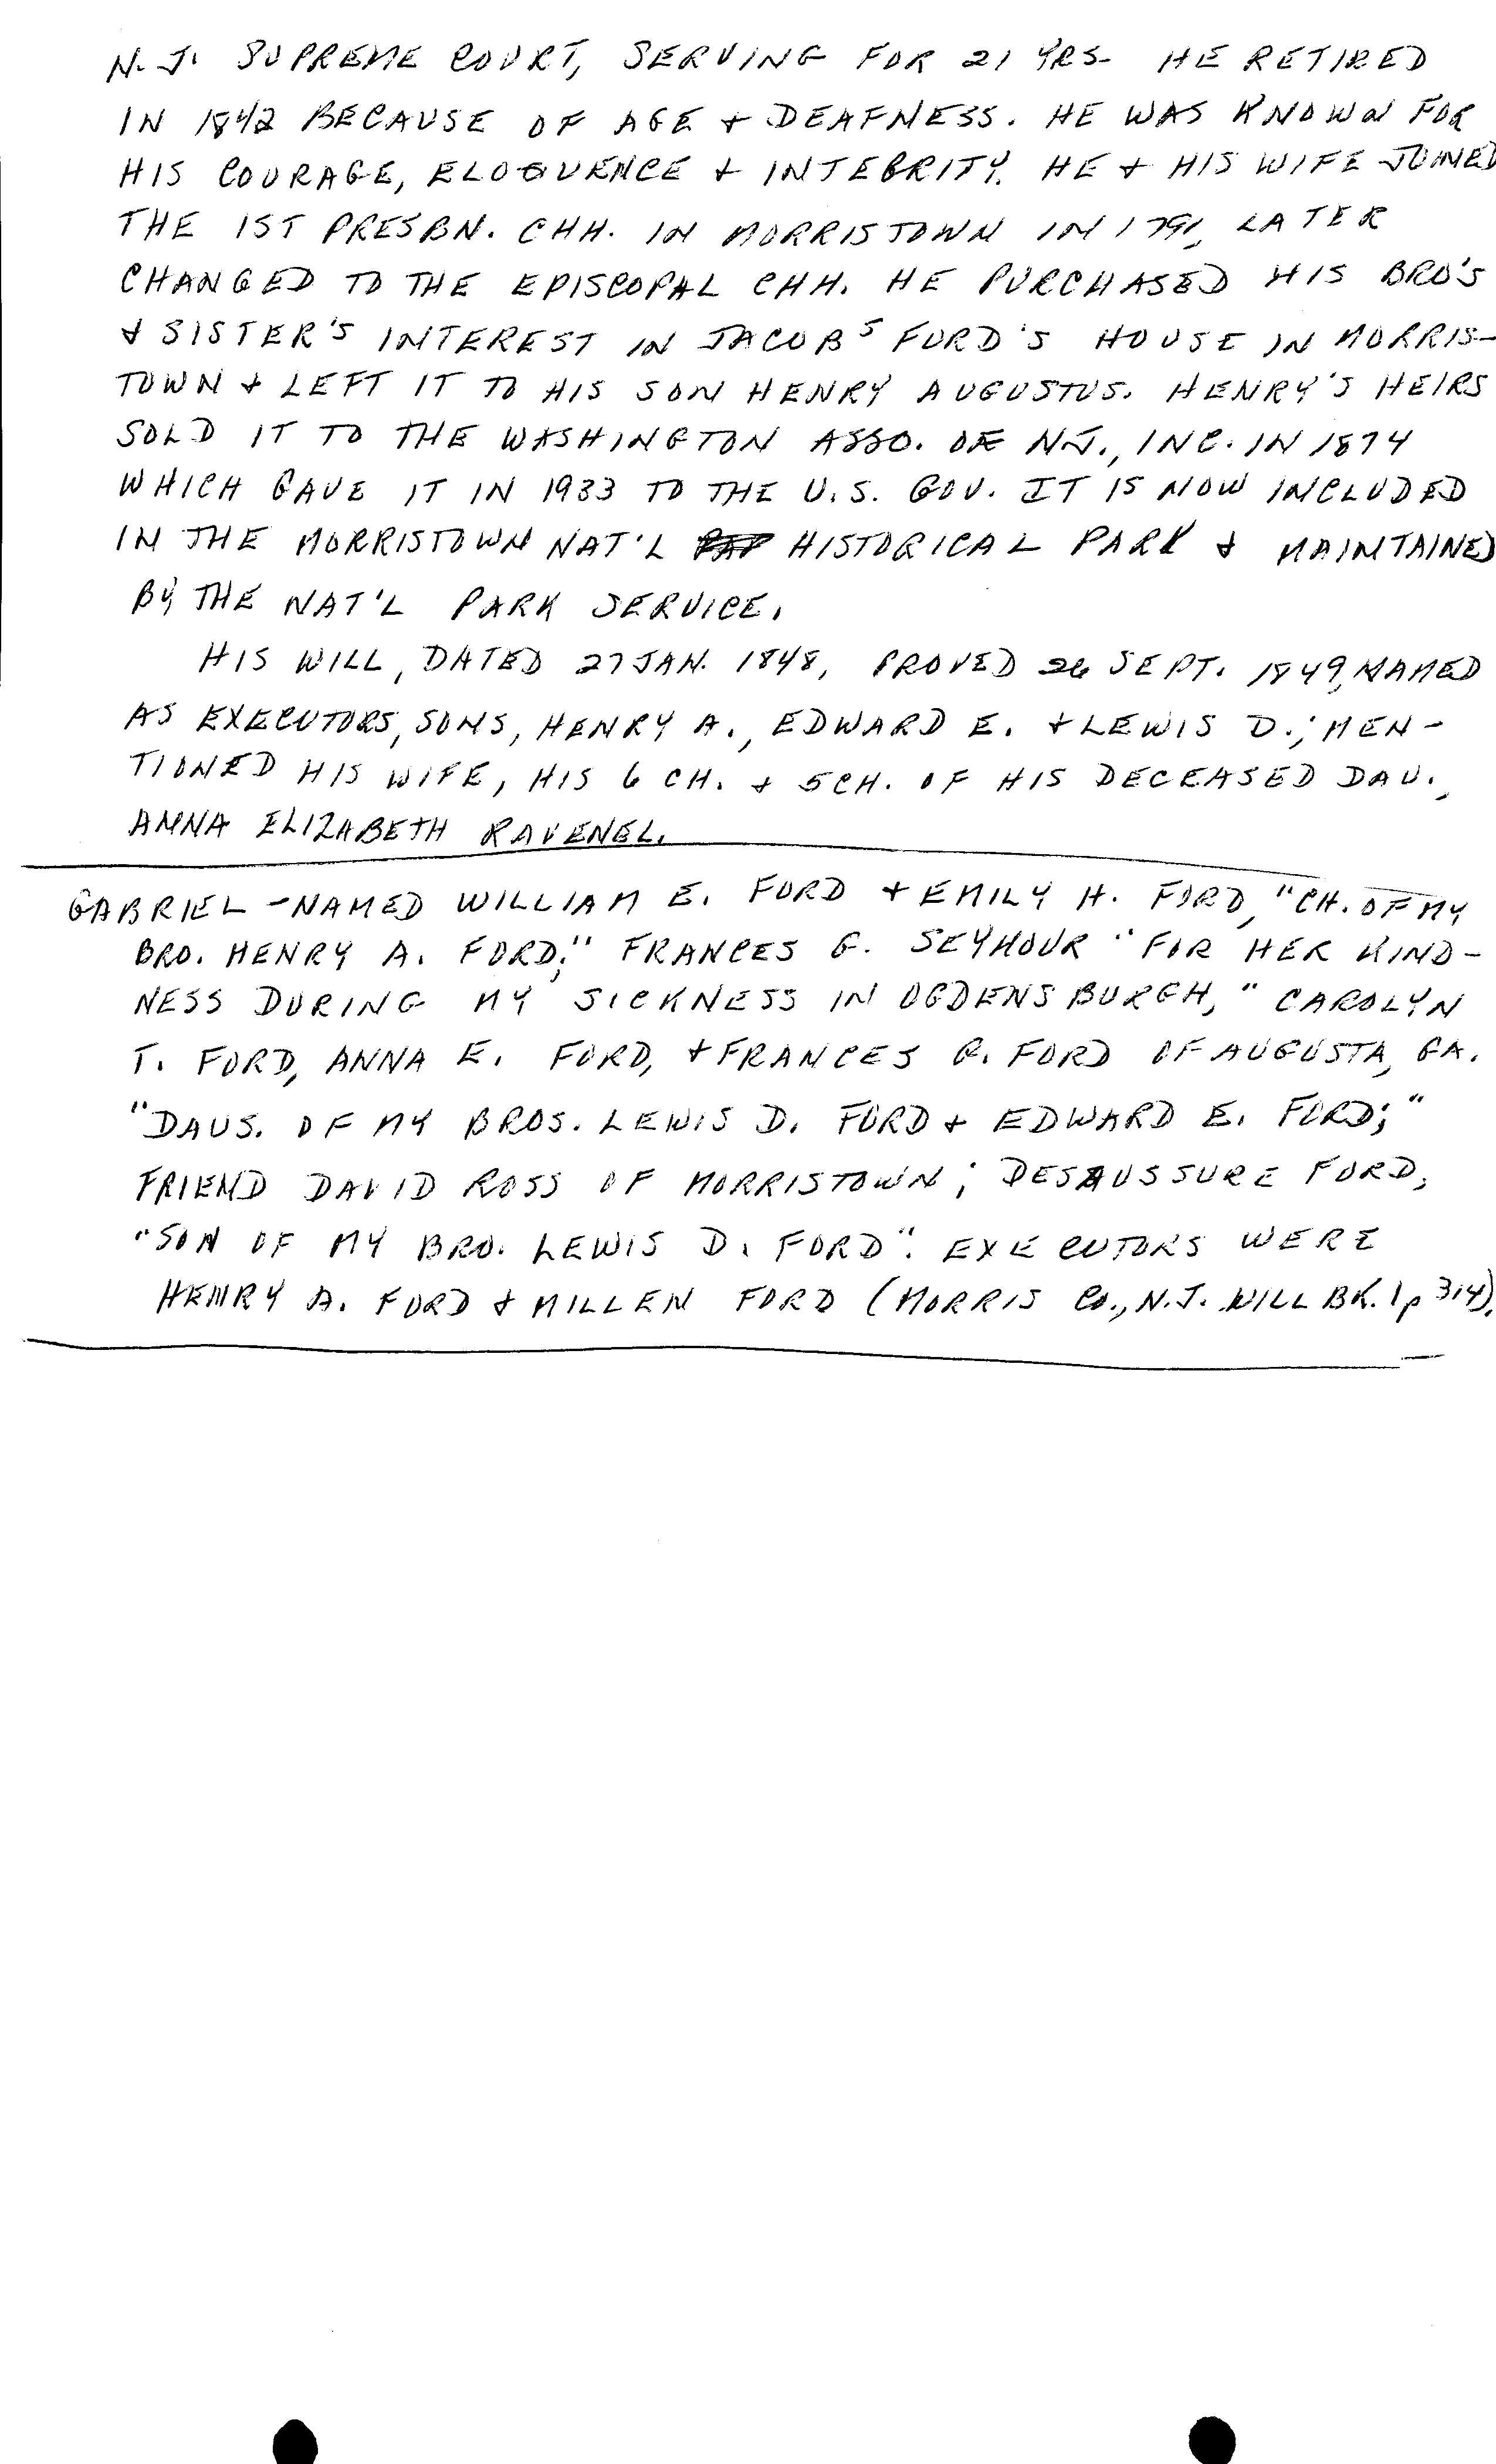 N. J. SUPREME COURT, SERVING FOR 21 YRS. HE RETIRED
IN 1842 BECAUSE OF AGE + DEAFNESS. HE WAS KNOWN FOR
HIS COURAGE, ELOQUENCE + INTEGRITY. HE + HIS WIFE JOINED
THE 1ST PRESBN. CHH. IN MORRISTOWN IN 1791, LATER
CHANGED TO THE EPISCOPAL CHH. HE PURCHASED HIS BRO'S
+ SISTER'S INTEREST IN JACOB⁵ FORD'S HOUSE IN MORRIS-
TOWN + LEFT IT TO HIS SON HENRY AUGUSTUS. HENRY'S HEIRS
SOLD IT TO THE WASHINGTON ASSO. OF N.J., INC. IN 1874
WHICH GAVE IT IN 1933 TO THE U.S. GOV. IT IS NOW INCLUDED
IN THE MORRISTOWN NAT'L HISTORICAL PARK + MAINTAINED
BY THE NAT'L PARK SERVICE.
HIS WILL, DATED 27 JAN. 1848, PROVED 26 SEPT. 1849, NAMED
AS EXECUTORS, SONS, HENRY A., EDWARD E. + LEWIS D.; MEN-
TIONED HIS WIFE, HIS 6 CH. + 5 CH. OF HIS DECEASED DAU.,
ANNA ELIZABETH RAVENEL.
GABRIEL - NAMED WILLIAM E. FORD + EMILY H. FORD, "CH. OF MY
BRO. HENRY A. FORD;" FRANCES G. SEYMOUR "FOR HER KIND-
NESS DURING MY SICKNESS IN OGDENSBURGH," CAROLYN
T. FORD, ANNA E. FORD, + FRANCES G. FORD OF AUGUSTA, GA.
"DAUS. OF MY BROS. LEWIS D. FORD + EDWARD E. FORD;"
FRIEND DAVID ROSS OF MORRISTOWN; DESAUSSURE FORD,
"SON OF MY BRO. LEWIS D. FORD". EXECUTORS WERE
HENRY A. FORD + MILLEN FORD (MORRIS CO., N.J. WILL BK. 1 p 314).